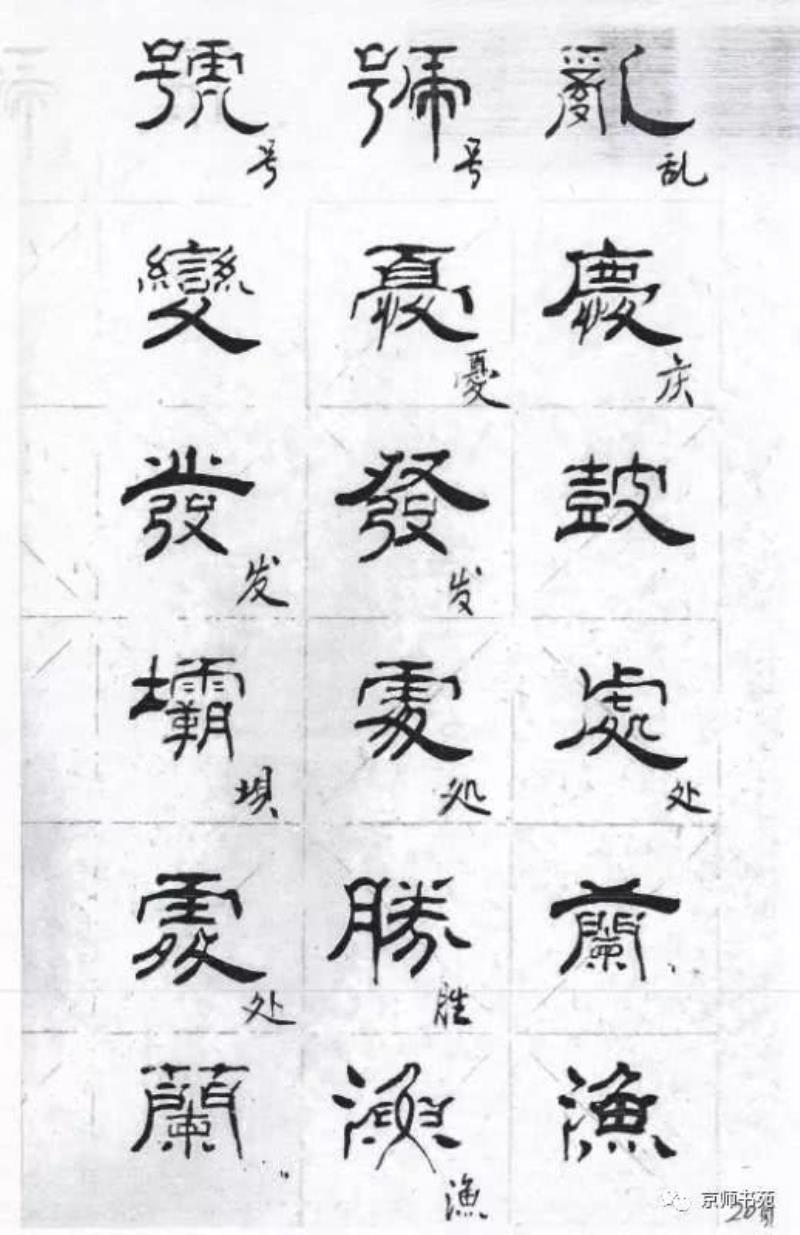 號 號 亂
号 号 乱
變 憂 慶
憂 庆
發 發 鼓
发 发
壩 處 處
坝 处 处
處 勝 蘭
处 胜
蘭 漁 漁
渔
京师书苑